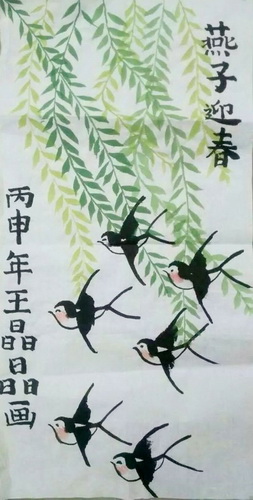 燕子迎春
丙申年王晶晶画